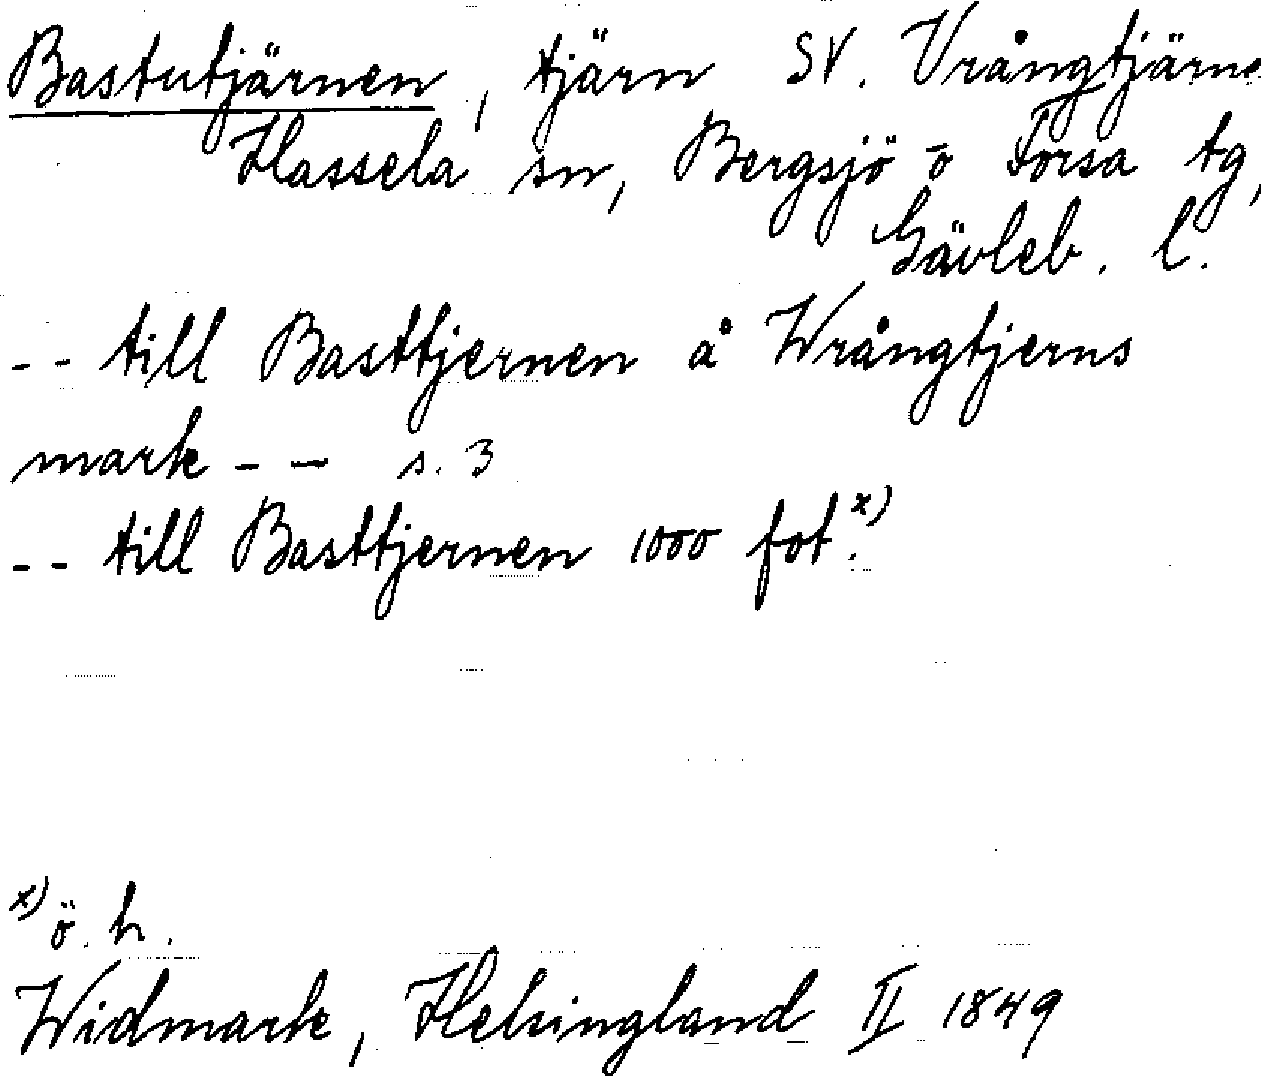 Bastutjärnen, tjärn SV. Vrångtjärne
Hassela sn, Bergsjö o Forsa tg,
Gävleb. l.
-- till Basttjernen å Wrångtjerns
mark -- s. 3
-- till Basttjernen 1000 fot.x)
x) ö. h.
Widmark, Helsingland II 1849